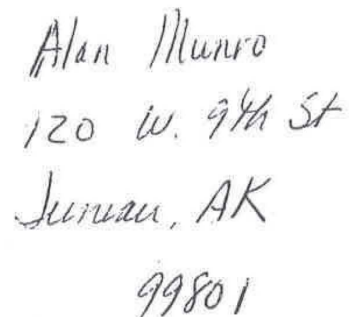 Alan Munro
120 W. 9th St
Juneau, AK
99801